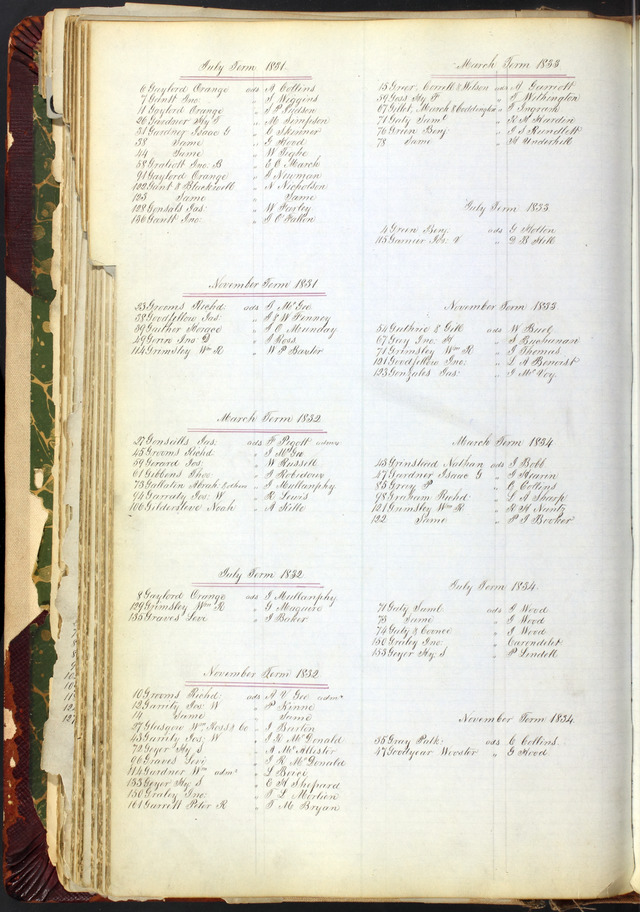 July Term 1831.
6 Gaylord Orange ads A Collins
7 Gantt Jno: " J Wiggins
11 Gaylord Orange " J P Gulson
26 Gardner Hy G " M Simpson
31 Gardner Isaac G " C Skinner
38 Same " G Hood
44 Same " W Tighe
58 Gratiott Jno. B " E C March
91 Gaylord Orange " J Newman
102 Gant & Blackwell " N Nicholson
123 Same " Same
128 Gonsals Jas: " W Finley
136 Gantt Jno: " J O'Fallon
November Term 1831
23 Grooms Richd: ads J McGee
38 Goodfellow Jas: " J & W Finney
39 Gaither Horace " J C Munday
49 Gorin Jno: D " J Ross
114 Grimsley Wm R " W P Baxter
March Term 1832.
27 Gonsalls Jas: ads F Pigott admx
45 Grooms Richd " J McGee
59 Gerard Jos: " W Russell
61 Gibbons Theo: " J Robidoux
73 Gallatin Abrah: & others " J Mullanphy
94 Garrity Jos: W " R Lewis
106 Gilderslove Noah " A Kille
July Term 1832
8 Gaylord Orange ads J Mullanphy
129 Grimsley Wm R " G Maguire
135 Graves Levi " J Baker
November Term 1832
10 Grooms Richd: ads A V Gee admr
12 Garrity Jos: W " P Kinne
14 Same " Same
27 Glasgow Wm, Ross & Co " J Barton
43 Garrity Jos: W " J R McDonald
72 Geyer Hy S " A McAllister
96 Graves Levi " J R McDonald
114 Gardner Wm admr " L Boice
133 Geyer Hy S " C H Shepard
150 Graley Jno: " T L Morlien
161 Garrett Peter R " T M Bryan
March Term 1833
15 Greer, Cerrell & Wilson ads M Garrett
39 Gass Hy F " J Withington
67 Gillet, March & Coddington " J Ingram
71 Gaty Saml " K H Harden
76 Green Benj: " J S Rundlett
78 Same " H Underhill
July Term 1833.
4 Green Benj: ads G Holton
115 Garnier Jos: V " D B Hill
November Term 1833
54 Guthrie & Gill ads W Burd
67 Gay Jno: H " J Buchanan
71 Grimsley Wm R " J Thomas
121 Goodfellow Jno: " L A Benoist
123 Gonzales Jas: " J McVey
March Term 1834.
45 Grinstead Nathan ads J Bobb
47 Gardner Isaac G " J Hearin
83 Grey P " C Collins
98 Graham Richd: " L A Sharp
121 Grimsley Wm R " R H Nantz
122 Same " P J Broker
July Term 1834.
71 Gaty Saml ads J Wood
73 Same " J Wood
74 Gaty & Coonce " J Wood
150 Graley Jno: " Carondelet
153 Geyer Hy S " P Lindell
November Term 1834.
35 Gray Patk: ads C Collins.
47 Goodyear Wooster " G Hood.